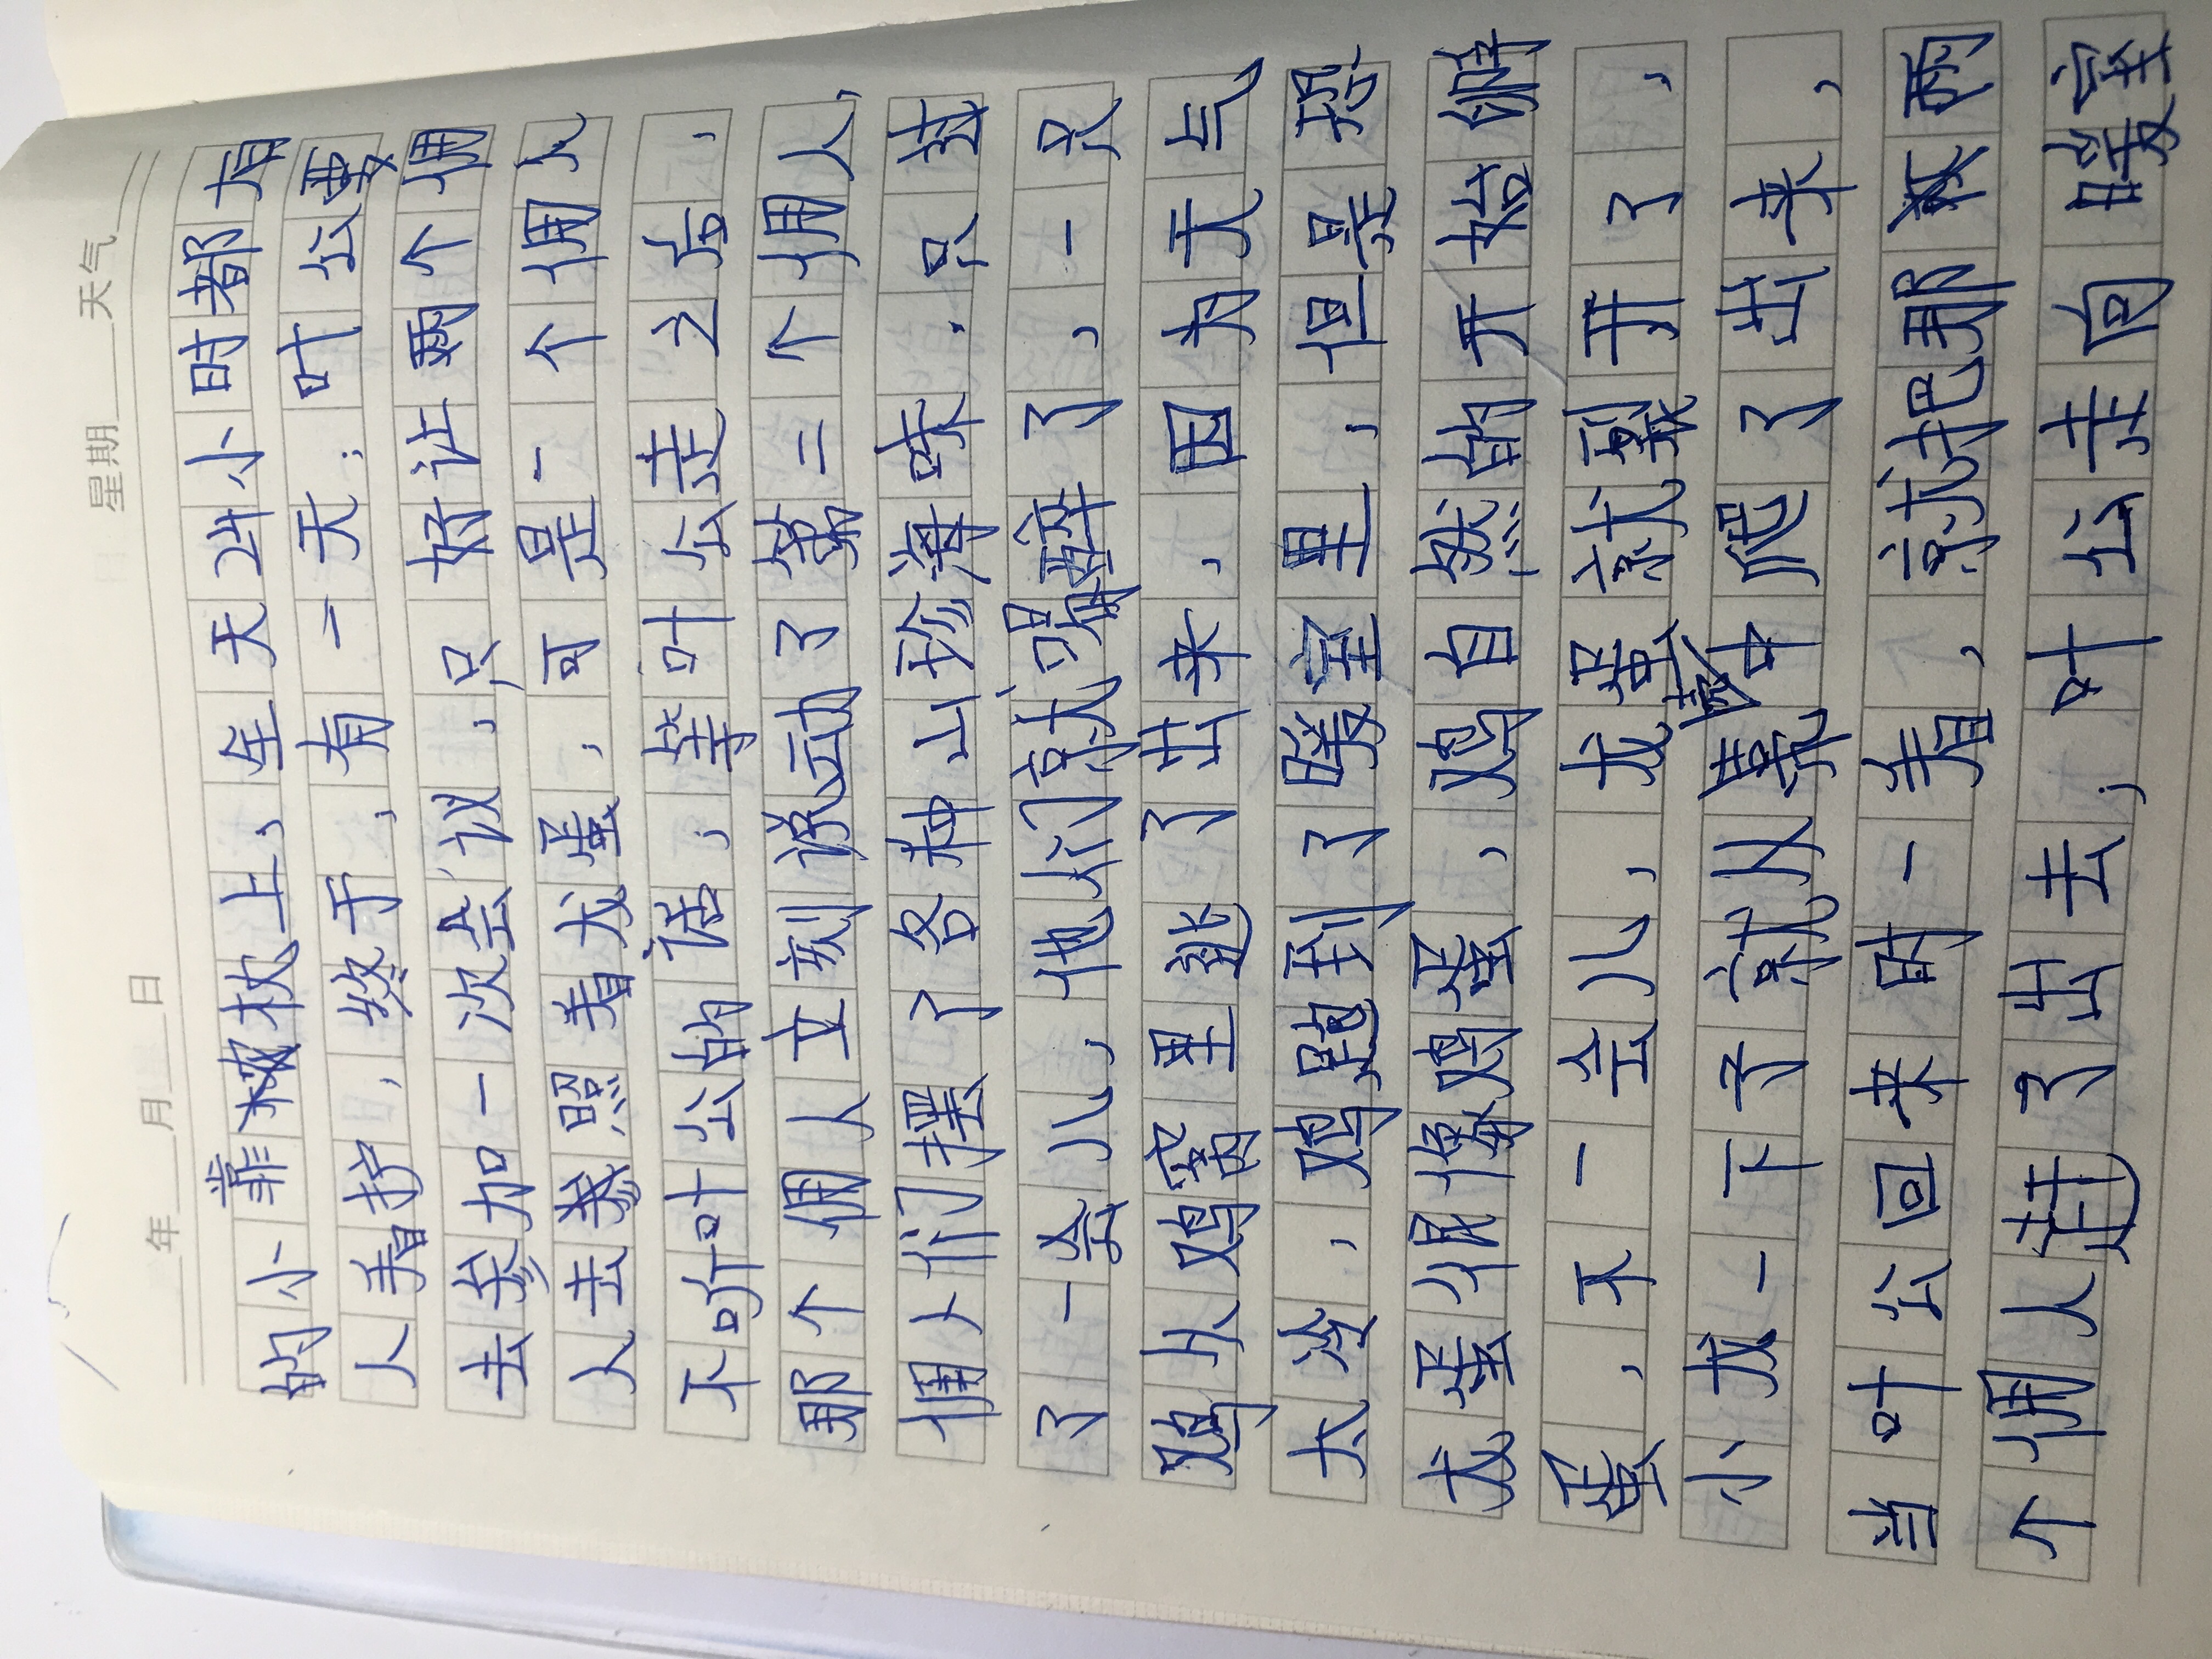 年 月 日 星期 天气
的小靠枕上，全天24小时都有
人看护，终于，有一天，叶公要
去参加一次会议，只好让两个佣
人去我照着龙蛋，可是一个佣人
不听叶公的话，等叶公走之后，
那个佣人立刻说动了第二个佣人，
佣人们摆了各种山珍海味．只过
了一会儿，他们就喝醉了，一只
鸡从鸡窝里逃了出来，因为天气
太冷，鸡跑到了暖室里，但是恐
龙蛋很像鸡蛋，鸡自然的开始孵
蛋，不一会儿，龙蛋就裂开了，
小龙一下子就从壳中爬了出来，
当叶公回来时一看，就把那两
个佣人赶了出去，叶公走向暖室